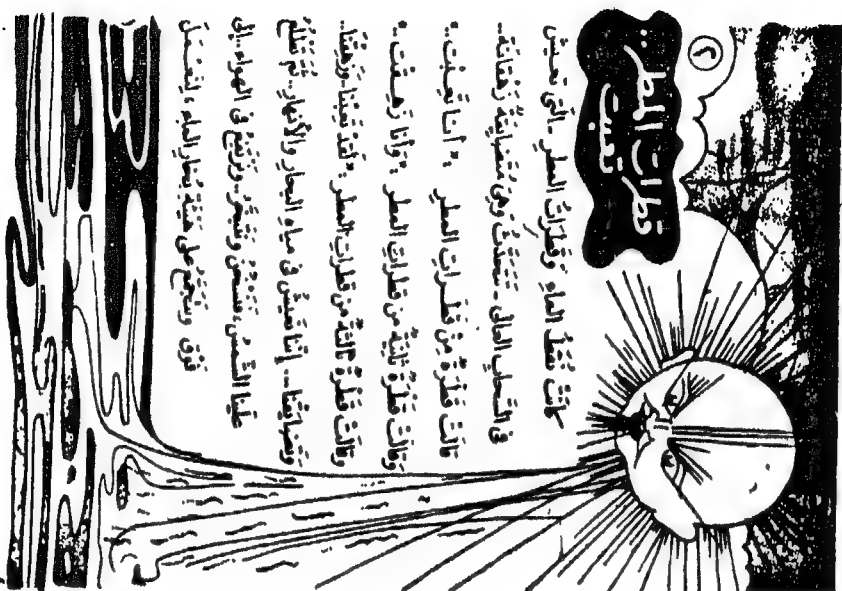 ٢
قطرات المطر ..
تعبت
كانَتْ نُقَطُ الماءِ وَقَطَراتُ المطرِ - الَّتي تَعيش
في السَّحابِ العالي - تَتَحَدَّثُ وَهِيَ مُتَضايِقَةٌ زَهْقانَة ..
قالَتْ قَطْرَةٌ مِنْ قَطَراتِ المطرِ : « أنا تَعِبْت » .
وَقالَتْ قَطْرَةٌ ثانِيَةٌ من قَطَراتِ المطرِ : « وَأنا زَهِقْت » .
وَقالَتْ قَطْرَةٌ ثالثةٌ من قَطَراتِ المطرِ : « لَقَدْ تَعِبْنا - وَزَهِقْنا ..
وَتَضايَقْنا .. إنَّنا نَعيشُ في مياهِ البحارِ والأنهارِ .. ثم تَطْلُعُ
عَلَيْنا الشَّمسُ ، نَسْخُنُ وَنَتَبَخَّرُ .. وَنَرْتَفِعُ في الهواءِ .. إلى
فَوْق وَنَتَجَمَّعُ على هَيْئَةِ بُخارِ الماءِ ،